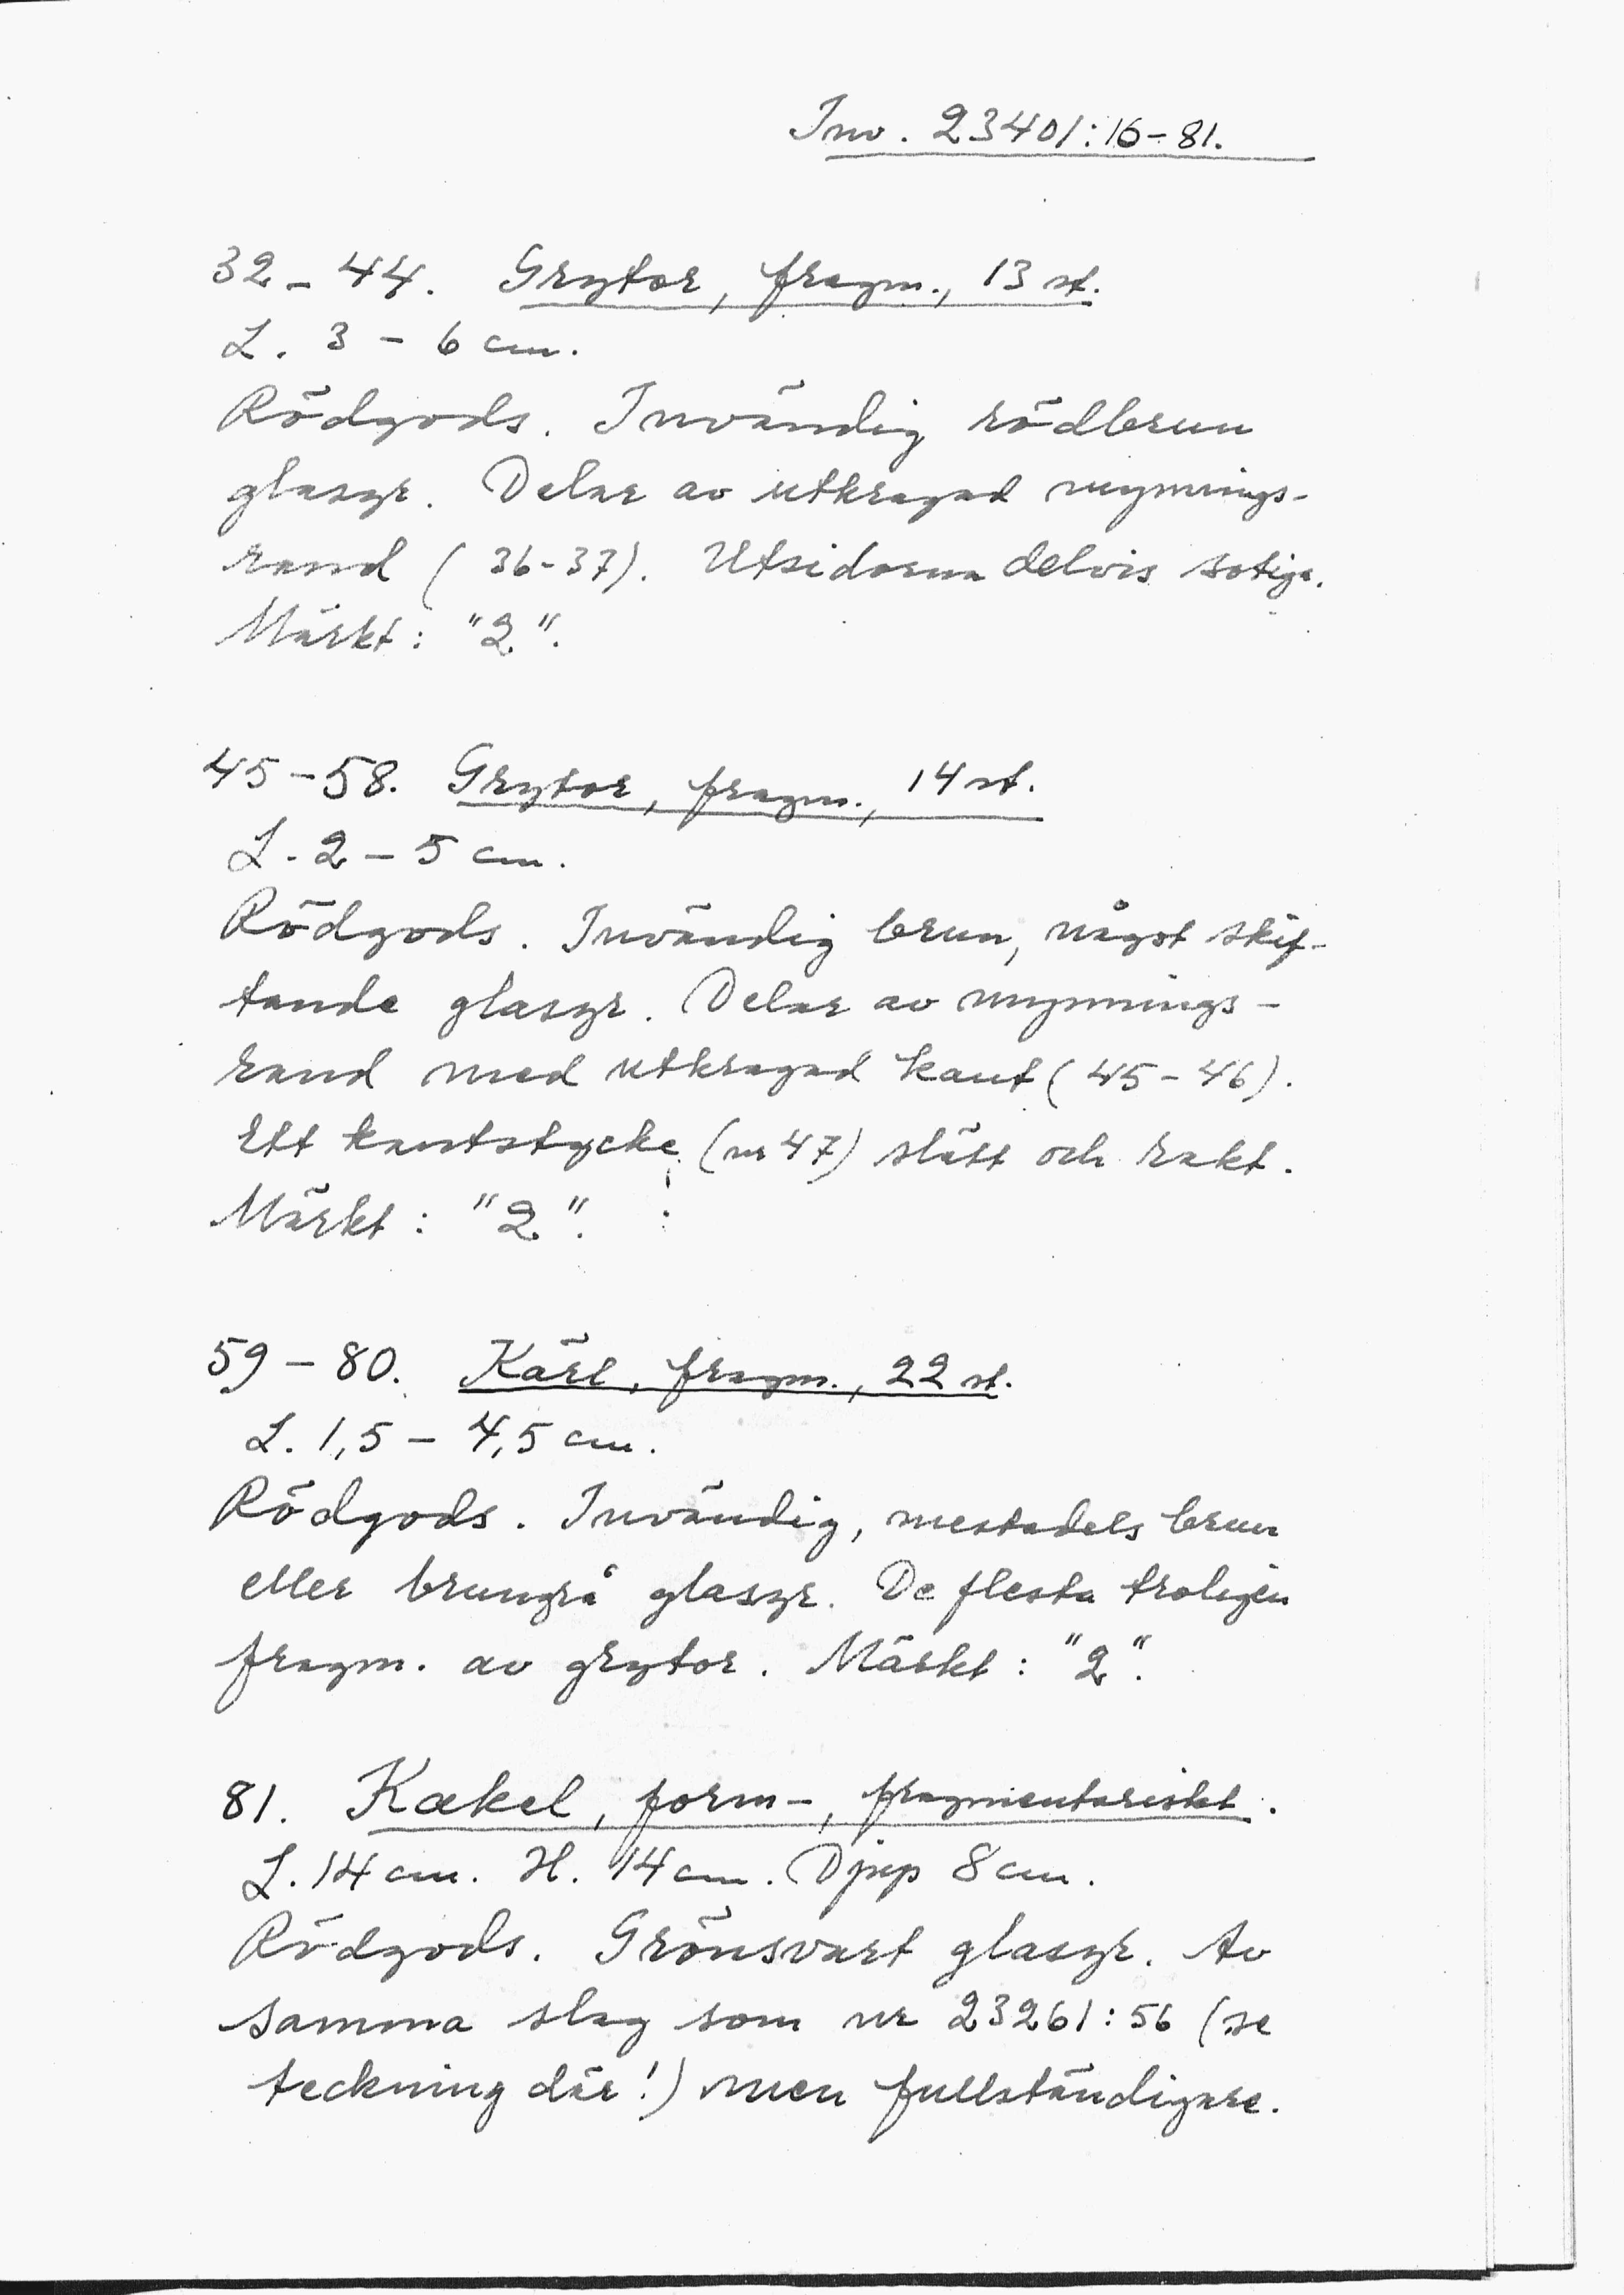 Inv. 23401:16-81.
32-44. Grytor, fragm., 13 st.
L. 3 - 6 cm.
Rödgods. Invändig rödbrun
glasyr. Delar av utkragad mynnings-
rand (36-37). Utsidorna delvis sotiga.
Märkt: "2".
45-58. Grytor, fragm., 14 st.
L. 2 - 5 cm.
Rödgods. Invändig brun, något skif-
tande glasyr. Delar av mynnings-
rand med utkragad kant (45-46).
Ett kantstycke (nr 47) slätt och rakt.
Märkt: "2".
59 - 80. Kärl, fragm., 22 st.
L. 1,5 - 4,5 cm.
Rödgods. Invändig, mestadels brun
eller brungrå glasyr. De flesta troligen
fragm. av grytor. Märkt: "2".
81. Kakel, form-, fragmentariskt.
L. 14 cm. H. 14 cm. Djup 8 cm.
Rödgods. Grönsvart glasyr. Av
samma slag som nr 23261:56 (se
teckning där!) men fullständigare.